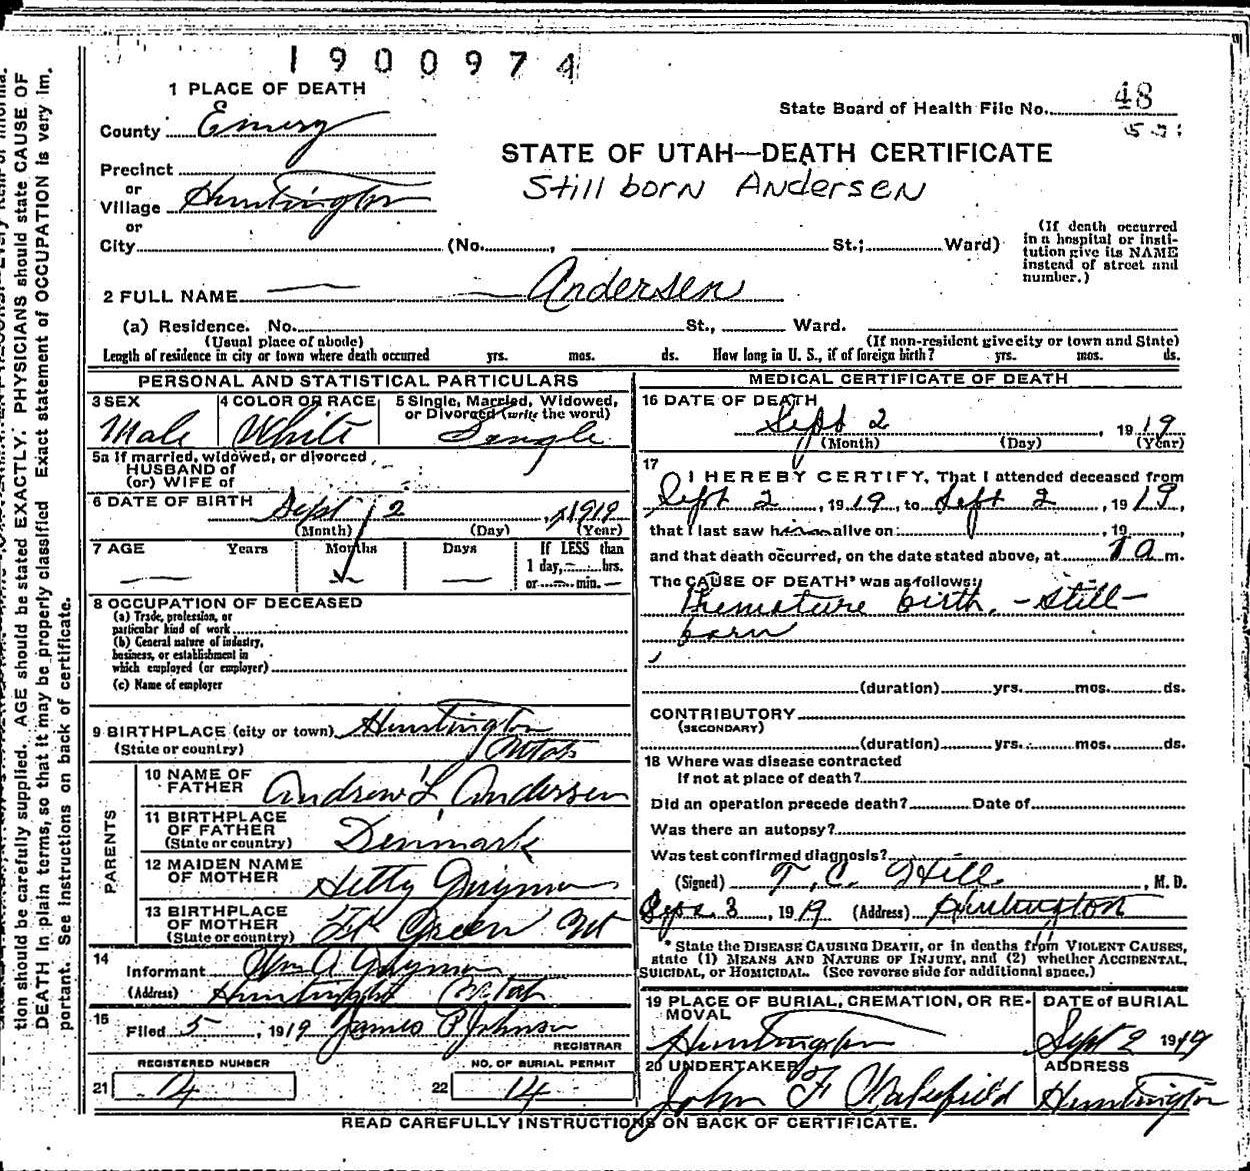 1900974
1 PLACE OF DEATH
State Board of Health File No. 48
County Emery
STATE OF UTAH—DEATH CERTIFICATE
Precinct
or
Still born Andersen
Village Huntington
or
City (No. , St.; Ward)
(If death occurred
in a hospital or insti-
tution give its NAME
instead of street and
number.)
2 FULL NAME — — Andersen
(a) Residence. No. St., Ward.
(Usual place of abode) (If non-resident give city or town and State)
Length of residence in city or town where death occurred yrs. mos. ds. How long in U. S., if of foreign birth? yrs. mos. ds.
PERSONAL AND STATISTICAL PARTICULARS
3 SEX 4 COLOR OR RACE 5 Single, Married, Widowed,
or Divorced (write the word)
Male White Single
5a If married, widowed, or divorced
HUSBAND of
(or) WIFE of
6 DATE OF BIRTH Sept 2, 1919
(Month) (Day) (Year)
7 AGE Years Months Days If LESS than
1 day, — hrs.
— — or — min. —
8 OCCUPATION OF DECEASED
(a) Trade, profession, or
particular kind of work
(b) General nature of industry,
business, or establishment in
which employed (or employer)
(c) Name of employer
9 BIRTHPLACE (city or town) Huntington
(State or country) Utah
PARENTS
10 NAME OF
FATHER Andrew L Andersen
11 BIRTHPLACE
OF FATHER
(State or country) Denmark
12 MAIDEN NAME
OF MOTHER Hetty Guymon
13 BIRTHPLACE
OF MOTHER
(State or country) Ft Green Ut
14
Informant Wm A Guymon
(Address) Huntington Utah
15
Filed 5, 1919 James P Johnson
REGISTRAR
REGISTERED NUMBER NO. OF BURIAL PERMIT
21 14 22 14
MEDICAL CERTIFICATE OF DEATH
16 DATE OF DEATH
Sept 2, 1919
(Month) (Day) (Year)
17
I HEREBY CERTIFY, That I attended deceased from
Sept 2, 1919, to Sept 2, 1919,
that I last saw him alive on , 19
and that death occurred, on the date stated above, at 10 m.
The CAUSE OF DEATH* was as follows:
Premature birth. - still-
born
(duration) yrs. mos. ds.
CONTRIBUTORY
(SECONDARY)
(duration) yrs. mos. ds.
18 Where was disease contracted
If not at place of death?
Did an operation precede death? Date of
Was there an autopsy?
Was test confirmed diagnosis?
(Signed) T. C. Hill, M. D.
Sept 3, 1919 (Address) Huntington
* State the DISEASE CAUSING DEATH, or in deaths from VIOLENT CAUSES,
state (1) MEANS AND NATURE OF INJURY, and (2) whether ACCIDENTAL,
SUICIDAL, or HOMICIDAL. (See reverse side for additional space.)
19 PLACE OF BURIAL, CREMATION, OR RE-
MOVAL
DATE of BURIAL
Huntington Sept 2 1919
20 UNDERTAKER ADDRESS
John F Wakefield Huntington
READ CAREFULLY INSTRUCTIONS ON BACK OF CERTIFICATE.
tion should be carefully supplied. AGE should be stated EXACTLY. PHYSICIANS should state CAUSE OF
DEATH in plain terms, so that it may be properly classified. Exact statement of OCCUPATION is very im-
portant. See instructions on back of certificate.